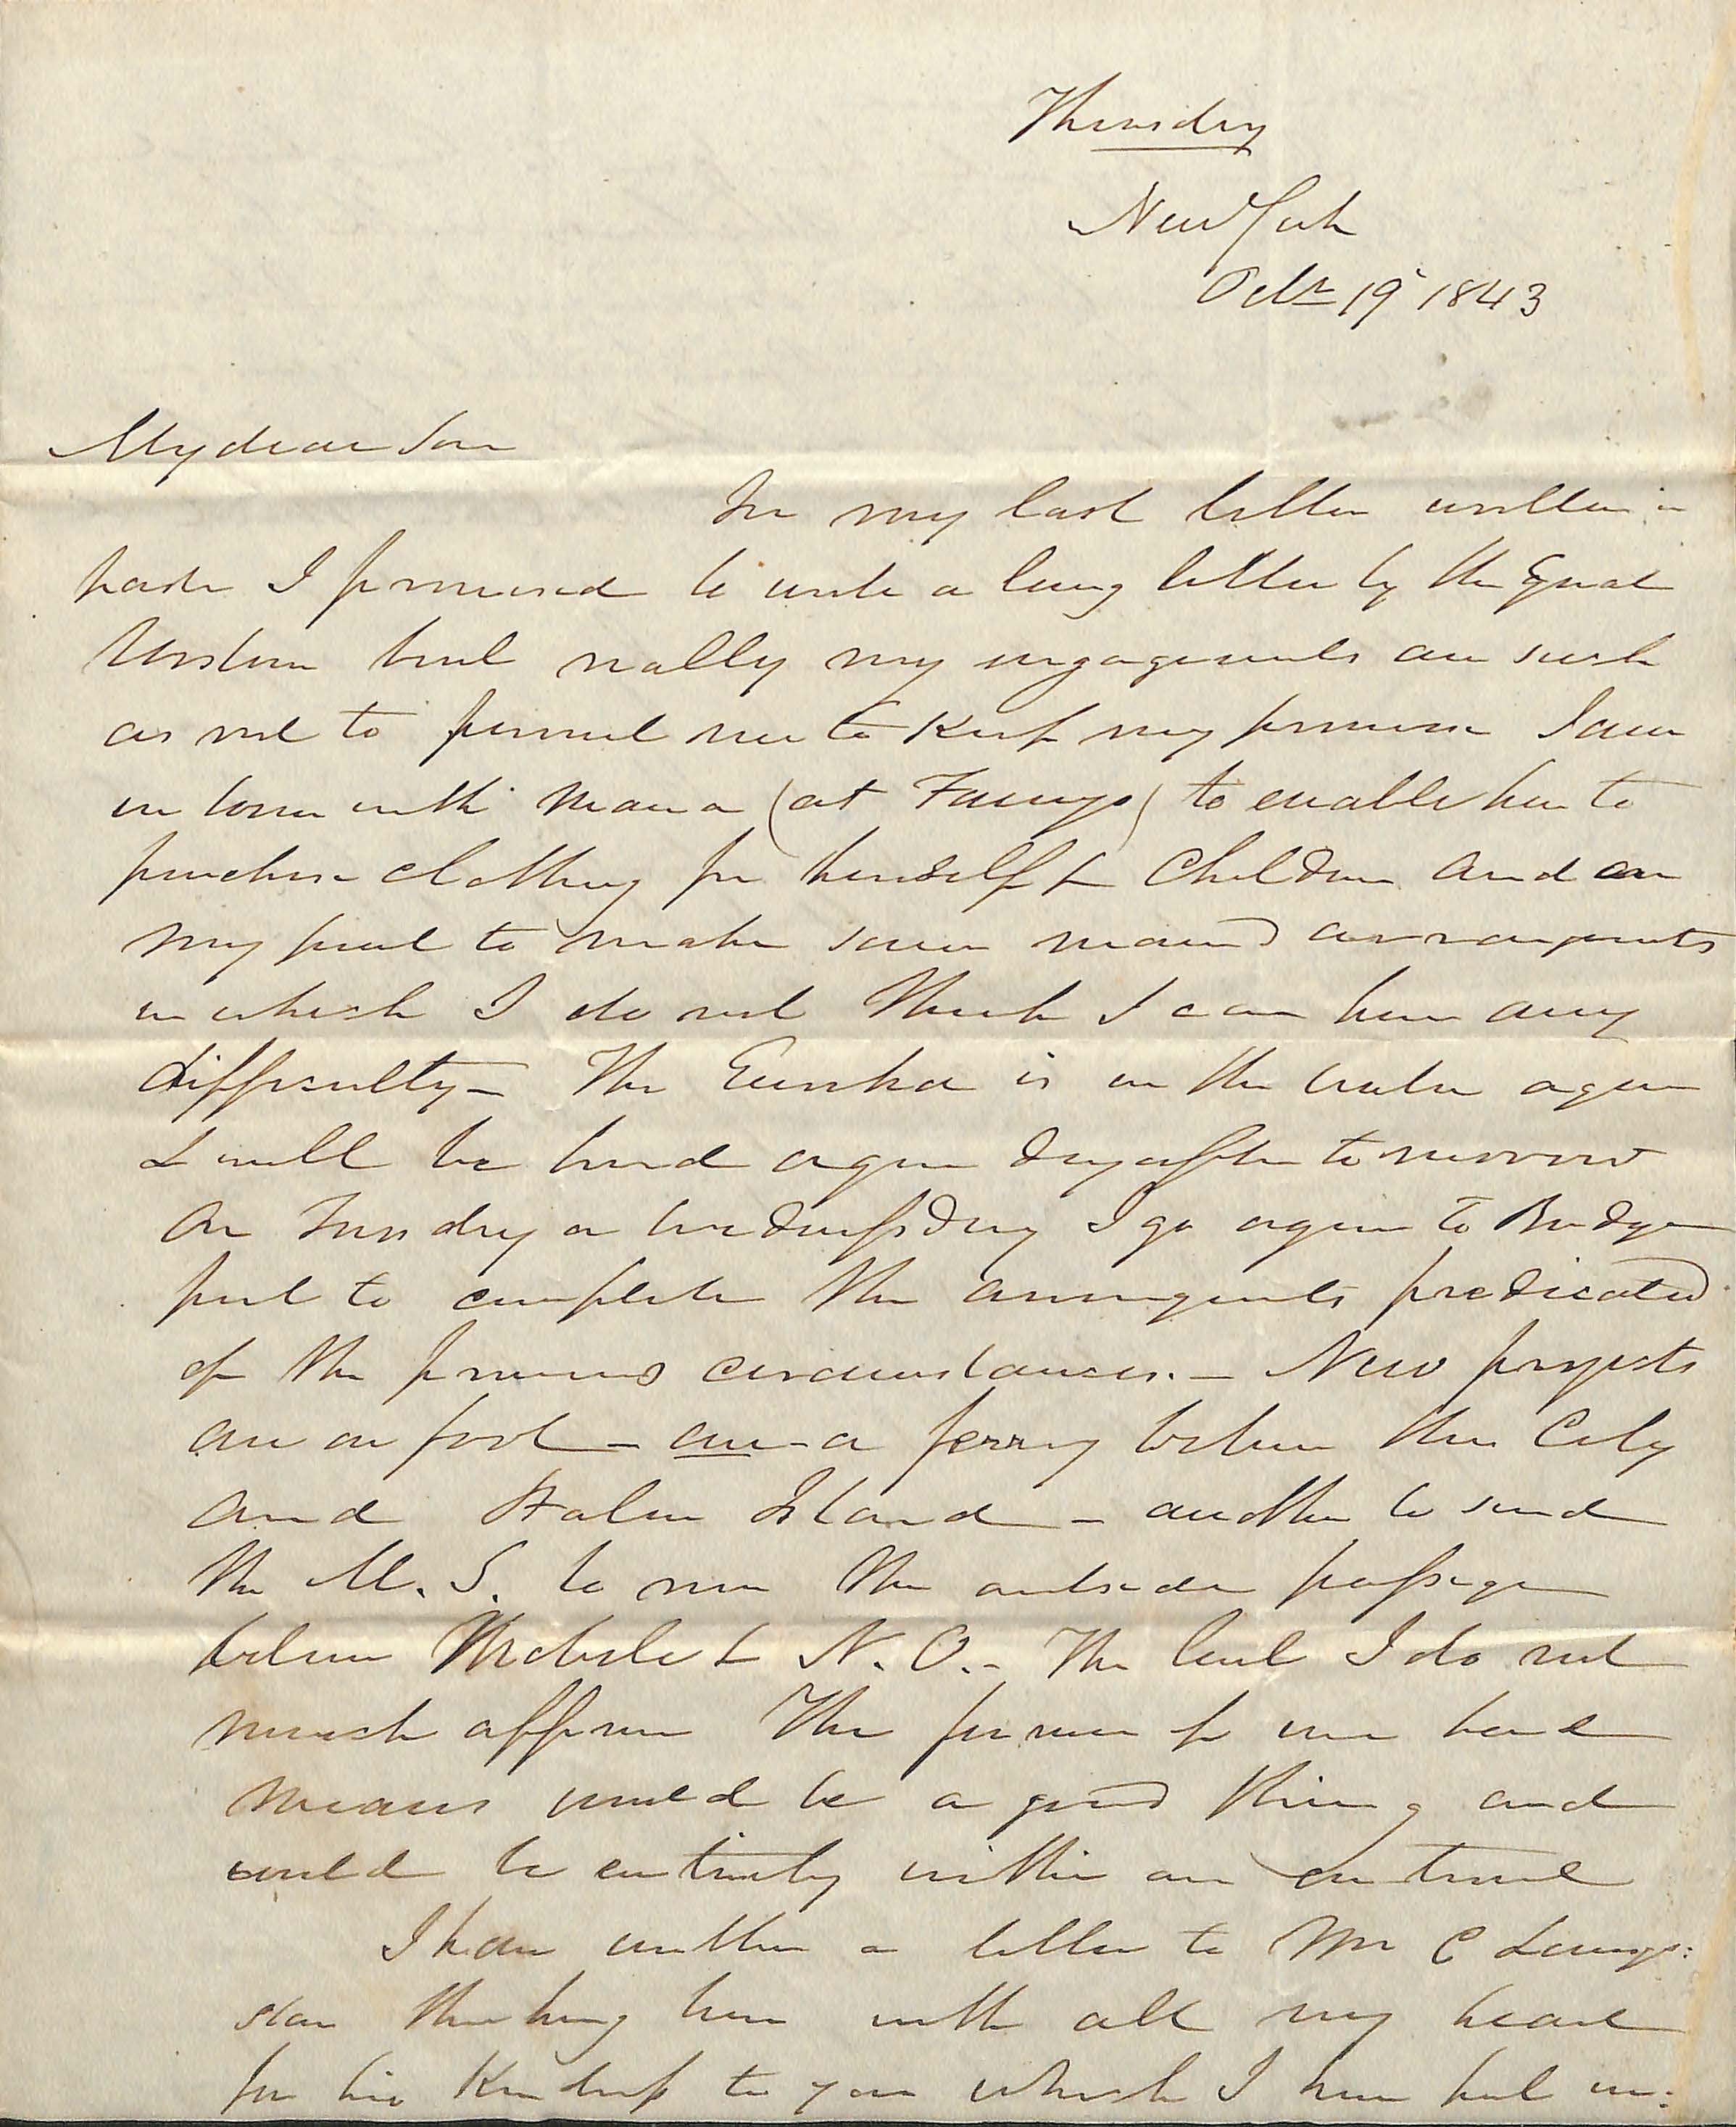 Thursday
New York
Octr 19 1843
My dear Son
In my last letter written in
haste I promised to write a long letter by the Great
Western but really my engagements are such
as not to permit me to keep my promise I am
in town with Mama (at Fannys) to enable her to
purchase clothing for herself & Children and on
my part to make some arrangements
in which I do not think I can have any
difficulty — The Eureka is in the water again
& will be tried again day after to morrow
On Tuesday or Wednesday I go again to Bridge
port to complete the arrangements predicated
of the promised circumstances. — New projects
are on foot — one - a ferry between this City
and Staten Island — another to send
the M. S. to run the outside passage
between Mobile & N. O. — The last I do not
much approve The former if we had
means would be a good thing and
would be entirely within our control
I have written a letter to Mr C Livings:
ton thanking him with all my heart
for his kindness to you which I have put un: